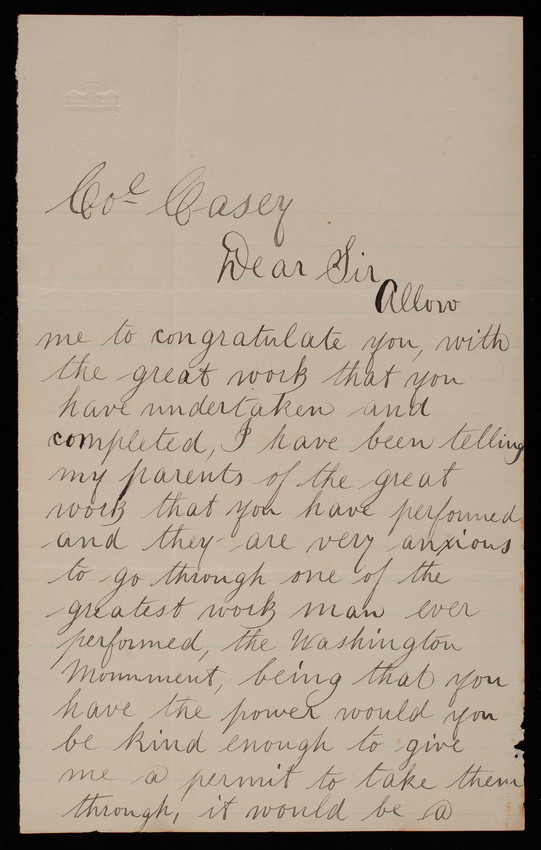 Col Casey
Dear Sir
Allow
me to congratulate you, with
the great work that you
have undertaken and
completed, I have been telling
my parents of the great
work that you have performed
and they are very anxious
to go through one of the
greatest work man ever
performed, the Washington
Monument, being that you
have the power would you
be kind enough to give
me a permit to take them
through, it would be a